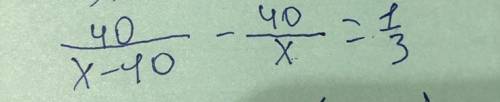 40/(x-40) - 40/x = 1/3